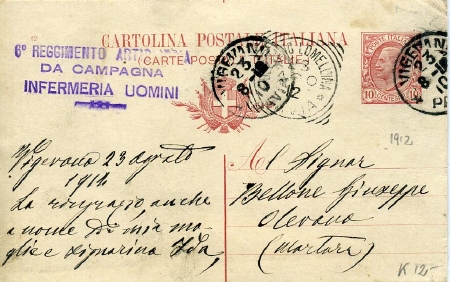 CARTOLINA POSTALE ITALIANA
(CARTE POSTALE D'ITALIE)
6° REGGIMENTO ARTIGLIERIA
DA CAMPAGNA
INFERMERIA UOMINI
VIGEVANO
23
8
10
10
1912
Vigevano 23 agosto
1912
La ringrazio anche
a nome di mia mo-
glie e signorina Ida,
Al Signor
Bellone Giuseppe
Olevano
(Mortara)
K 12,-